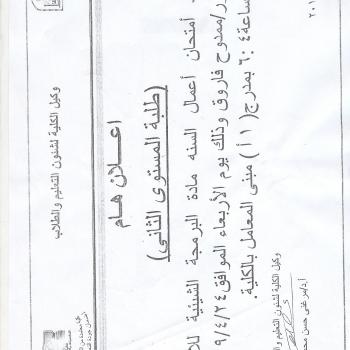 وكيل الكلية لشئون التعليم والطلاب
اعلان هام
(طلبة المستوى الثاني)
أمتحان أعمال السنه مادة البرمجة الشيئية
ممدوح فاروق وذلك يوم الأربعاء الموافق ٩/٤/٢٤
٤: ٦ بمدرج( ١ أ ) مبنى المعامل بالكلية.
وكيل الكلية لشئون التعليم
حسن
٢٠١